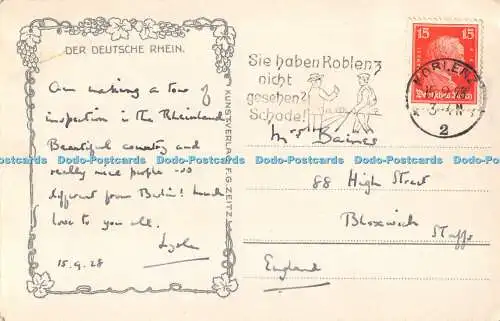 DER DEUTSCHE RHEIN.
Am making a tour of
inspection in the Rheinland
Beautiful country and
really nice people - so
different from Berlin! Much
love to you all.
15.9.28
KUNSTVERLAG F.G. ZEITZ
Sie haben Koblenz
nicht
gesehen?
Schade!
15 15
KOBLENZ
3-4 N
2
Mrs Baines
88 High Street
Bloxwich
Staffs
England
Dodo-Postcards.com Dodo-Postcards.com Dodo-Postcards.com Dodo-Postcards.com Dodo-Postcards.com